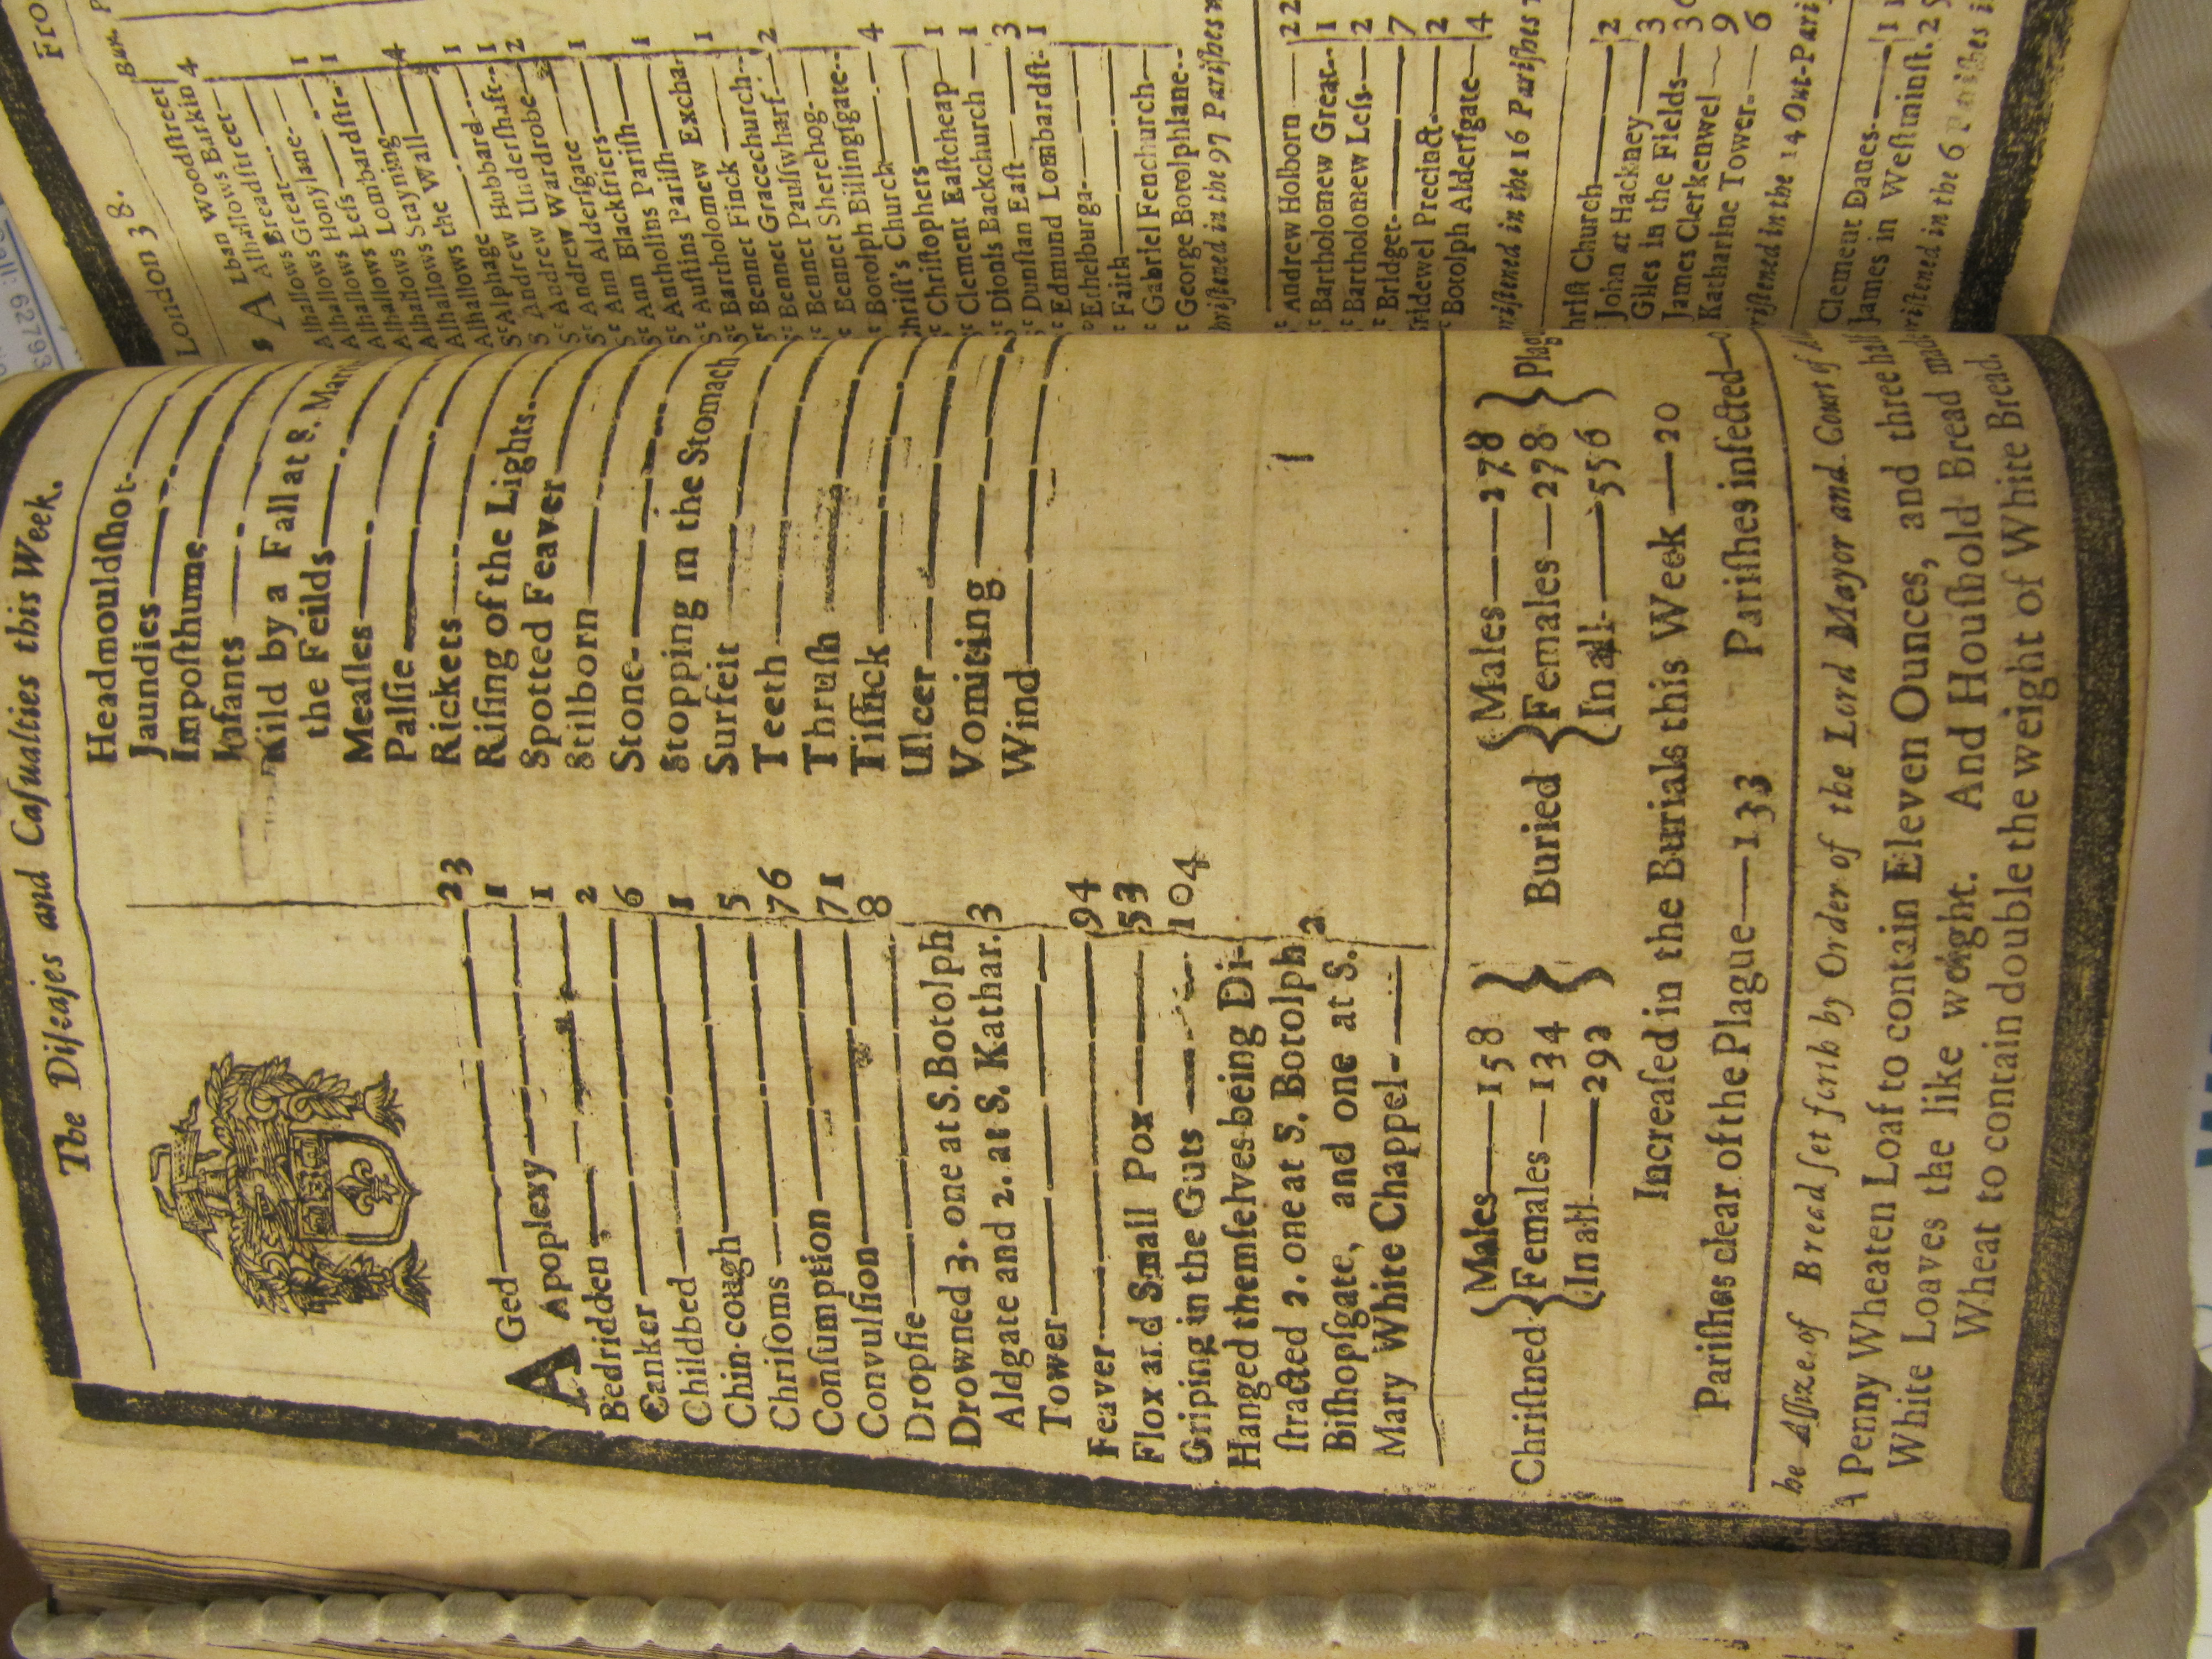 The Diſeaſes and Caſualties this Week.
AGed 23
Apoplexy 1
Bedridden 1
Canker 2
Childbed 6
Chin-cough 1
Chriſoms 5
Conſumption 76
Convulſion 71
Dropſie 8
Drowned 3. one at S. Botolph
Aldgate and 2. at S. Kathar. 3
Tower
Feaver 94
Flox and Small Pox 53
Griping in the Guts 104
Hanged themſelves being Di-
ſtracted 2. one at S. Botolph
Biſhopſgate, and one at S. 2
Mary White Chappel
Headmouldſhot
Jaundies
Impoſthume
Infants
Kild by a Fall at S. Mar
the Feilds
Meaſles
Palſie
Rickets
Riſing of the Lights
Spotted Feaver
Stilborn
Stone
Stopping in the Stomach
Surfeit
Teeth
Thruſh
Tiſſick
Ulcer
Vomiting
Wind
Chriſtned { Males 158 Females 134 In all 292 }
Buried { Males 278 Females 278 In all 556 } Plag
Increaſed in the Burials this Week 20
Pariſhes clear of the Plague 133 Pariſhes infected 0
he Aſſize of Bread ſet forth by Order of the Lord Mayor and Court of
A Penny Wheaten Loaf to contain Eleven Ounces, and three half
White Loaves the like weight. And Houſhold Bread made
Wheat to contain double the weight of White Bread.
London 38. Fro
Bur. P
St ALban Woodſtreet
Alhallows Barkin 4
Alhallows Breadſtreet
Alhallows Great 1
Alhallows Honylane
Alhallows Leſs 1
Alhallows Lombardſtr
Alhallows Stayning 4
Alhallows the Wall
Alphage 1
St Andrew Hubbard 1
St Andrew Underſhaft 2
St Andrew Wardrobe
St Ann Alderſgate 1
St Ann Blackfriers
St Antholins Pariſh 1
St Auſtins Pariſh
St Bartholomew Exchan 1
St Bennet Finck
St Bennet Gracechurch 2
St Bennet Paulſwharf
St Bennet Sherehog
St Botolph Billingſgate
Chriſt's Church 4
St Chriſtophers
St Clement Eaſtcheap 1
St Dionis Backchurch 1
St Dunſtan Eaſt 3
St Edmund Lombardſt 1
St Ethelburga
St Faith
St Gabriel Fenchurch
St George Botolphlane
hriſtned in the 97 Pariſhes
St Andrew Holborn 22
St Bartholomew Great 1
St Bartholomew Leſs 2
St Bridget 7
ridewel Precinct 2
St Botolph Alderſgate 4
riſtened in the 16 Pariſhes
hriſt Church 2
John at Hackney 3
Giles in the Fields
James Clerkenwel 9
Katharine Tower 6
riſtened in the 14 Out-Pari
Clement Danes
James in Weſtminſt.
riſtened in the 6 Pariſhes i